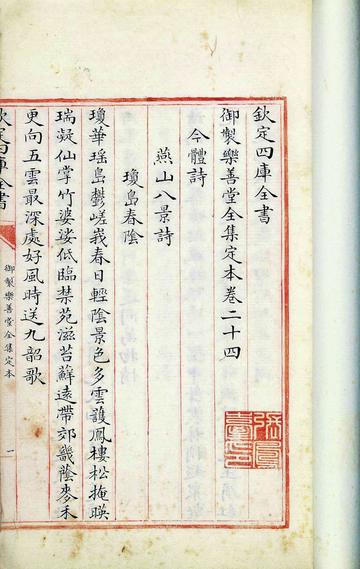 欽定四庫全書
御製樂善堂全集定本卷二十四
今體詩
燕山八景詩
瓊島春陰
瓊華瑶島鬱嵯峩春日輕陰景色多雲護鳳樓松掩暎
瑞凝仙掌竹婆娑低臨禁苑滋苔蘚遠帶郊畿蔭麥禾
更向五雲最深處好風時送九韶歌
欽定四庫全書
御製樂善堂全集定本
一